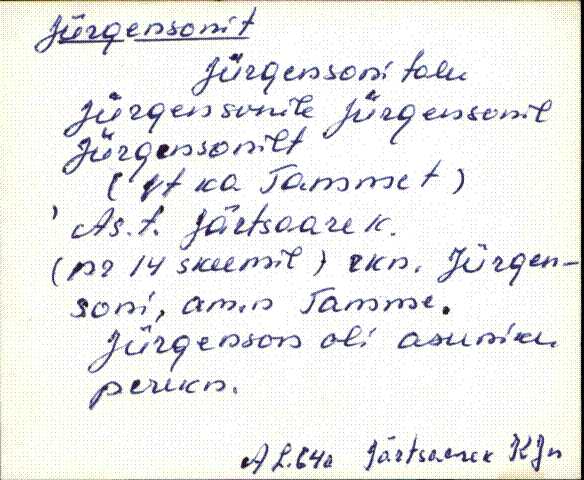 Jürgensonit
Jürgensoni talu
Jürgensonile Jürgensonil
Jürgensonilt
(vt ka Tammet)
As. t. Järtsaare k.
(nr 14 skeemil) rkn. Jürgen-
soni, am.n Tamme.
Jürgenson oli asuniku
perekn.
Järtsaare k KJn